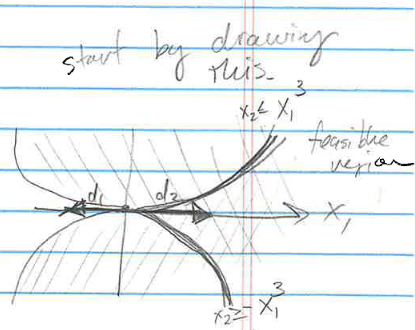 start by drawing
this.
x₂ ≤ x₁³
feasible
region
d₁ d₂
x₁
x₂ ≥ -x₁³